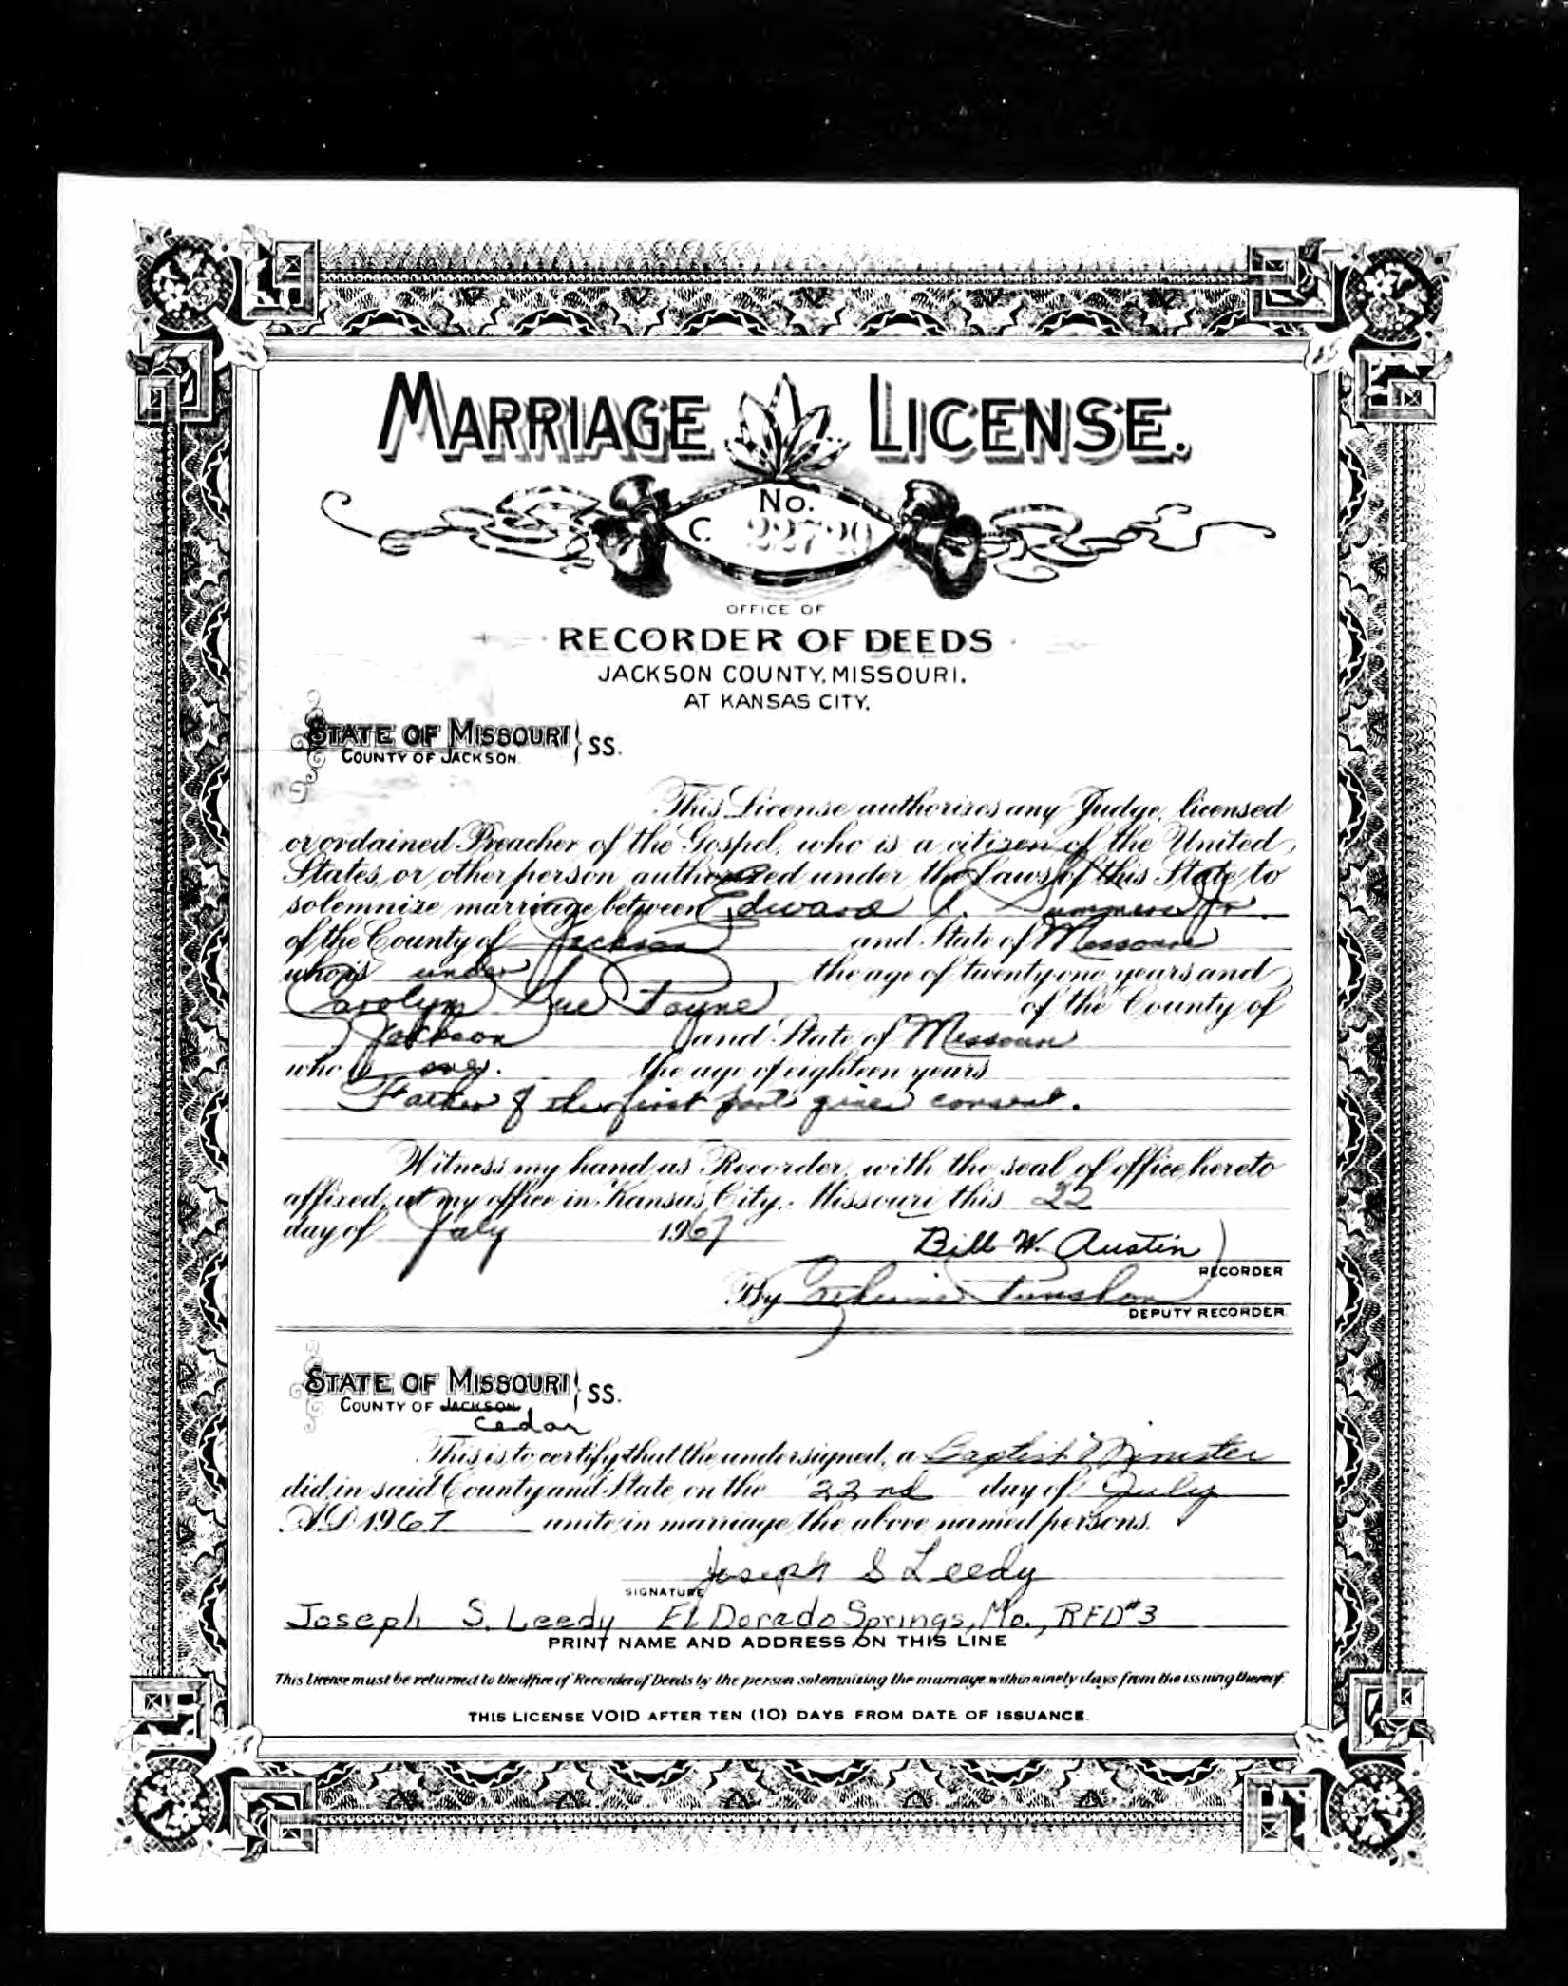 MARRIAGE LICENSE.
No.
C. 22720
OFFICE OF
RECORDER OF DEEDS
JACKSON COUNTY, MISSOURI.
AT KANSAS CITY.
STATE OF MISSOURI } SS.
COUNTY OF JACKSON.
This License authorizes any Judge, licensed
or ordained Preacher of the Gospel, who is a citizen of the United
States, or other person authorized under the Laws of this State, to
solemnize marriage between Edward A. Summers Jr.
of the County of Jackson and State of Missouri
who is under the age of twenty one years and
Carolyn Sue Payne of the County of
Jackson and State of Missouri
who is over. the age of eighteen years
Father of the first part gives consent.
Witness my hand as Recorder, with the seal of office hereto
affixed, at my office in Kansas City, Missouri this 22
day of July 1967
Bill W. Austin
RECORDER
By Catherine
DEPUTY RECORDER
STATE OF MISSOURI } SS.
COUNTY OF JACKSON
Cedar
This is to certify that the undersigned, a Baptist Minister
did in said County and State, on the 22nd day of July
A.D. 1967 unite in marriage the above named persons.
Joseph S Leedy
SIGNATURE
Joseph S. Leedy El Dorado Springs, Mo., RFD#3
PRINT NAME AND ADDRESS ON THIS LINE
This License must be returned to the office of Recorder of Deeds by the person solemnizing the marriage within ninety days from the issuing thereof.
THIS LICENSE VOID AFTER TEN (10) DAYS FROM DATE OF ISSUANCE.